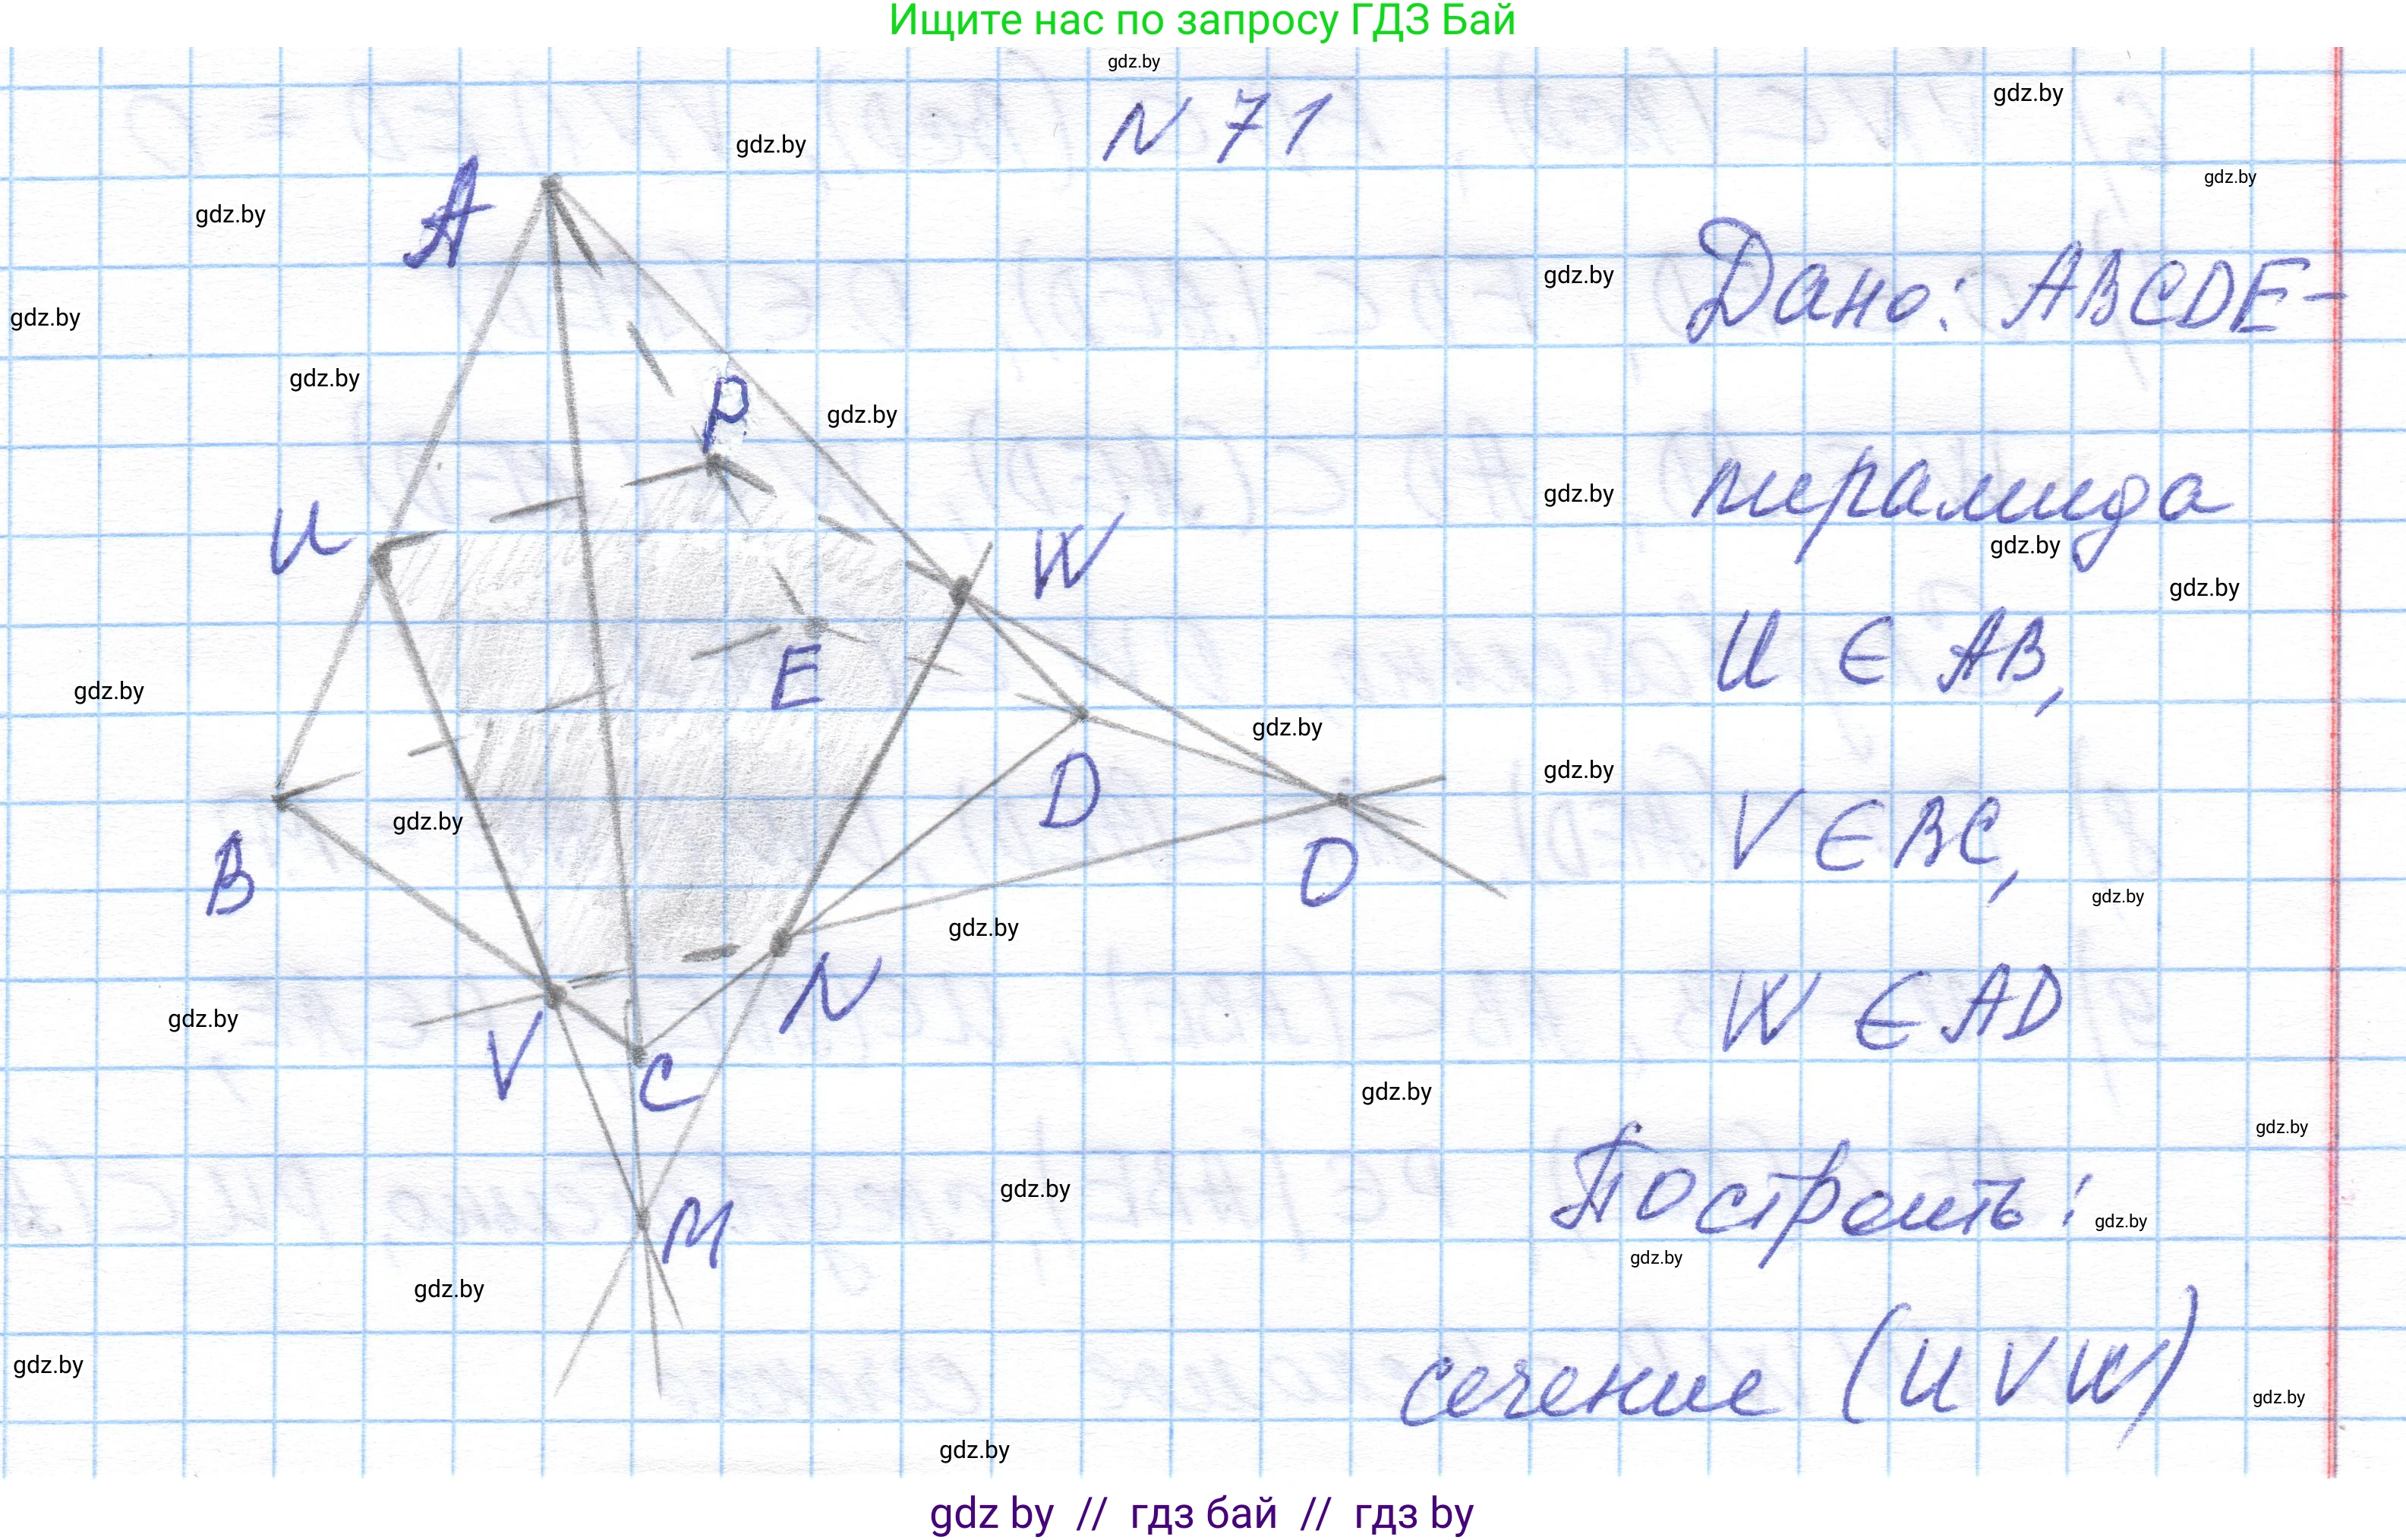 Ищите нас по запросу ГДЗ Бай
gdz.by
N 71
gdz.by
gdz.by
gdz.by
gdz.by
A
Дано: ABCDE-
gdz.by
gdz.by
gdz.by
P
gdz.by
пирамида
gdz.by
U
W
gdz.by
gdz.by
U ∈ AB,
E
gdz.by
gdz.by
D
gdz.by
gdz.by
V ∈ BC,
B
O
gdz.by
gdz.by
N
gdz.by
V
W ∈ AD
C
gdz.by
gdz.by
Построить:
gdz.by
gdz.by
M
gdz.by
gdz.by
gdz.by
сечение (UVW)
gdz.by
gdz.by
gdz by // гдз бай // гдз by